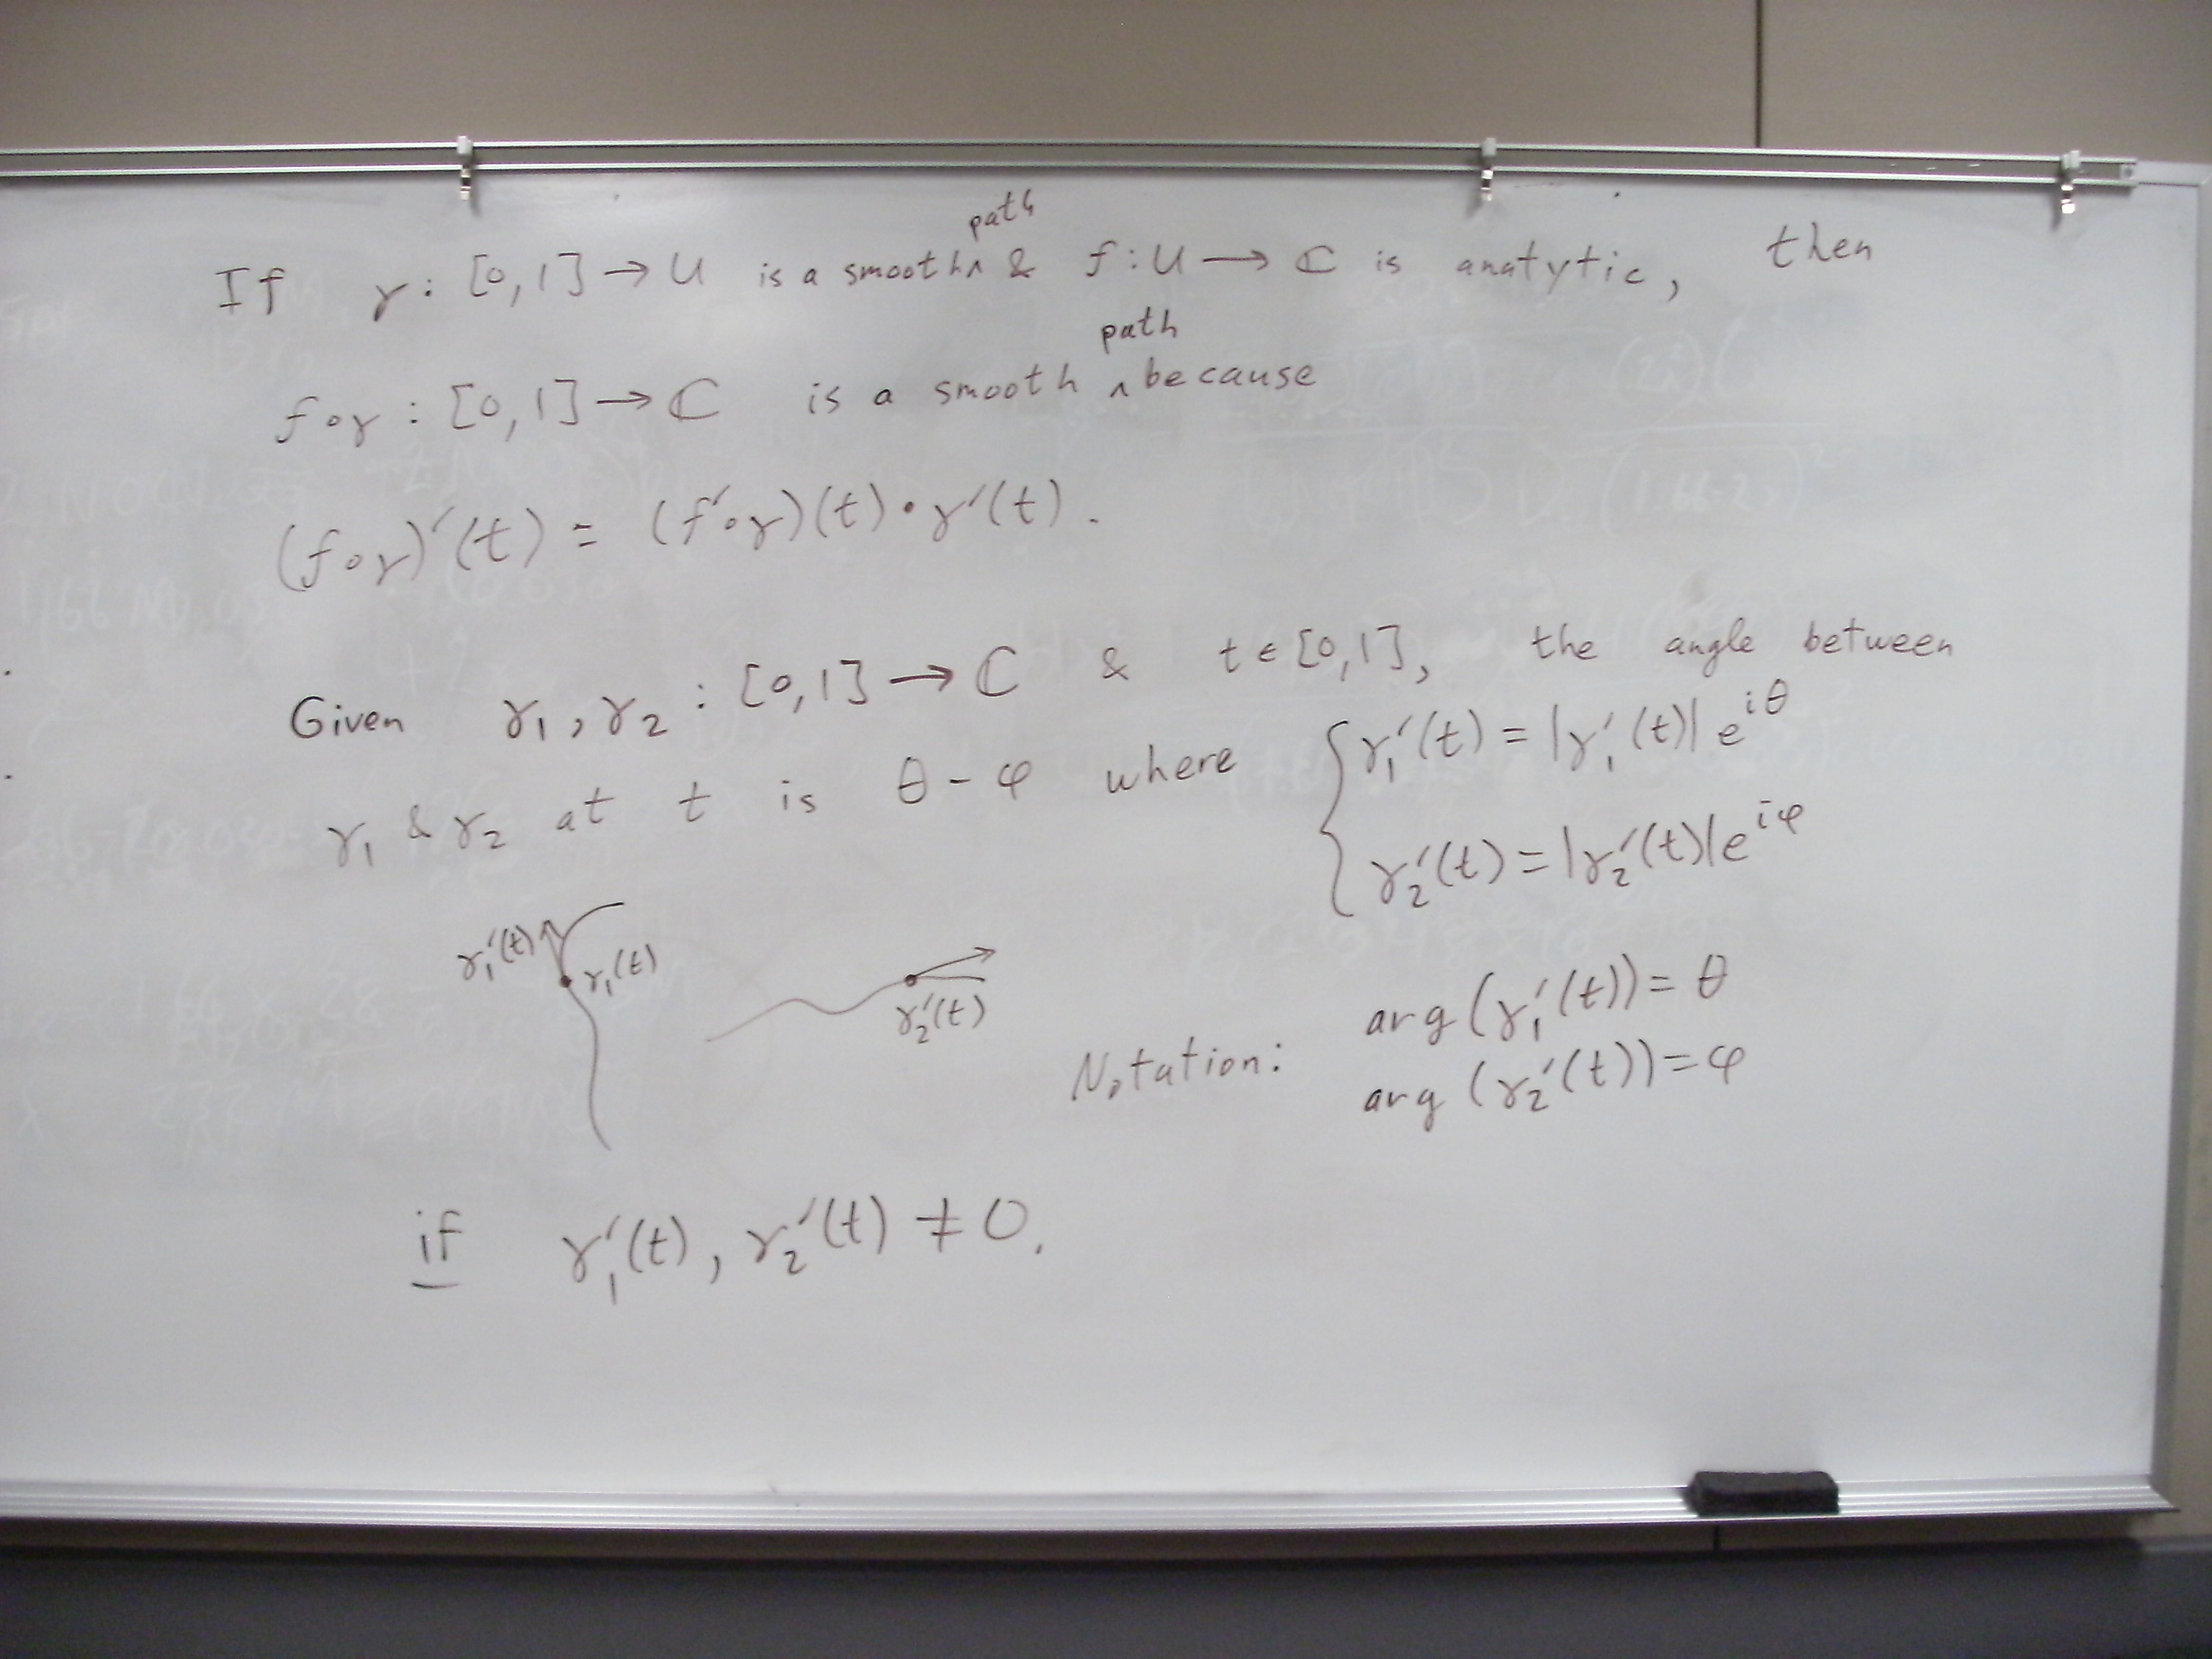 If γ : [0,1] → U is a smooth ∧ path & f : U → ℂ is analytic, then
f∘γ : [0,1] → ℂ is a smooth ∧ path because
(f∘γ)′(t) = (f′∘γ)(t)·γ′(t).
Given γ₁, γ₂ : [0,1] → ℂ & t ∈ [0,1], the angle between
γ₁ & γ₂ at t is θ - φ where { γ₁′(t) = |γ₁′(t)| e^{iθ}
γ₂′(t) = |γ₂′(t)| e^{iφ}
γ₁′(t) γ₁(t)
γ₂′(t)
Notation: arg(γ₁′(t)) = θ
arg(γ₂′(t)) = φ
if γ₁′(t), γ₂′(t) ≠ 0.